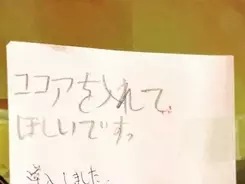 ココアを入れて、
ほしいです。
導入しました。